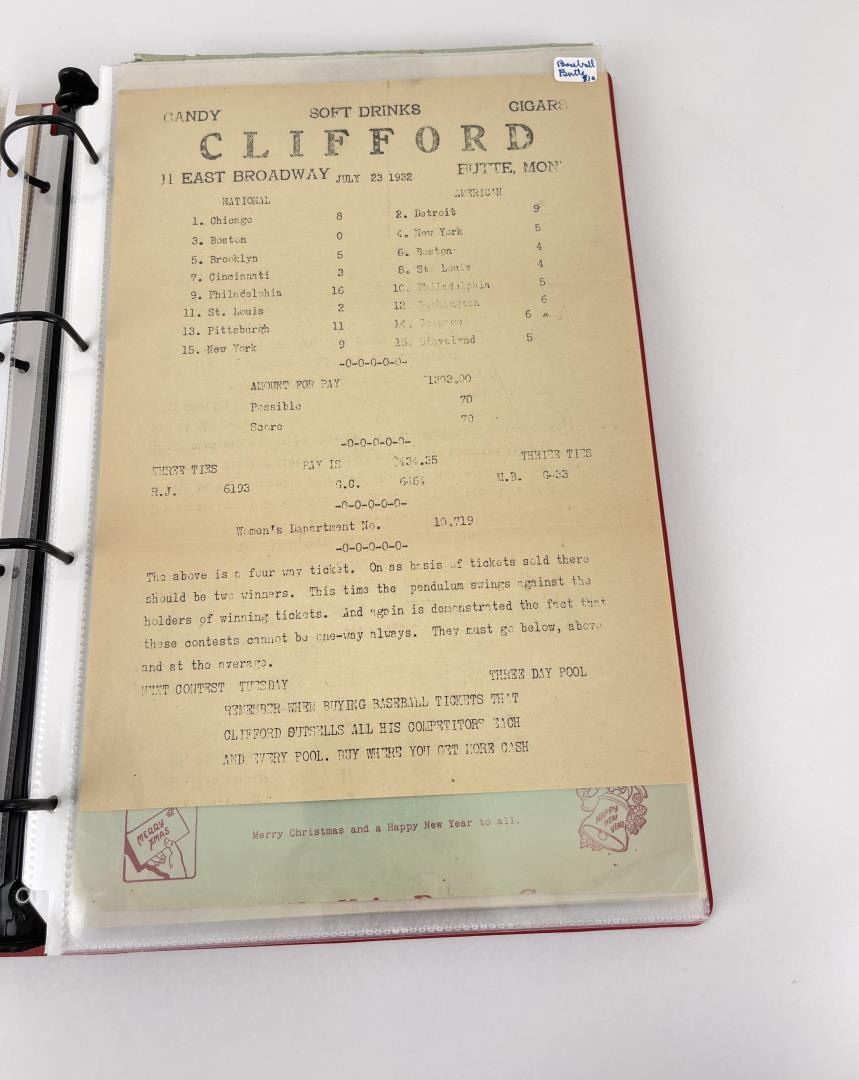 Baseball
Butte
$10
CANDY SOFT DRINKS CIGARS
CLIFFORD
11 EAST BROADWAY JULY 23 1932 BUTTE, MON
NATIONAL AMERICAN
1. Chicago 8 2. Detroit 9
3. Boston 0 4. New York 5
5. Brooklyn 5 6. Boston 4
7. Cincinnati 3 8. St. Louis 4
9. Philadelphia 16 10. Philadelphia 5
11. St. Louis 2 12. Washington 6
13. Pittsburgh 11 14. Chicago 6
15. New York 9 16. Cleveland 5
-0-0-0-0-0-
AMOUNT FOR PAY
Possible 70
Score 70
-0-0-0-0-0-
THREE TIES PAY IS THREE TIES
R.J. 6193 G.C. M.B.
-0-0-0-0-0-
Women's Department No. 10,719
-0-0-0-0-0-
The above is a four way ticket. On as basis of tickets sold there
should be two winners. This time the pendulum swings against the
holders of winning tickets. And again is demonstrated the fact that
these contests cannot be one-way always. They must go below, above
and at the average.
NEXT CONTEST TUESDAY THREE DAY POOL
REMEMBER WHEN BUYING BASEBALL TICKETS THAT
CLIFFORD OUTSELLS ALL HIS COMPETITORS EACH
AND EVERY POOL. BUY WHERE YOU GET MORE CASH
MERRY XMAS
Merry Christmas and a Happy New Year to all.
HAPPY NEW YEAR